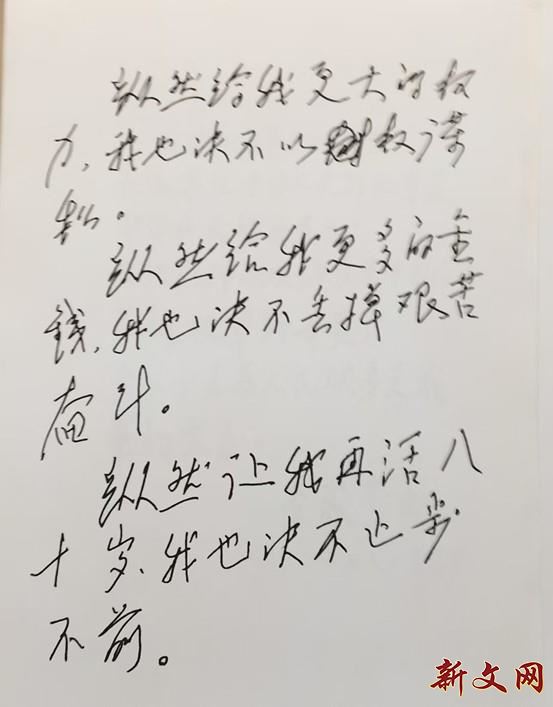 纵然给我更大的权
力，我也决不以权谋
私。
纵然给我更多的金
钱，我也决不丢掉艰苦
奋斗。
纵然让我再活八
十岁、我也决不止步
不前。
新文网